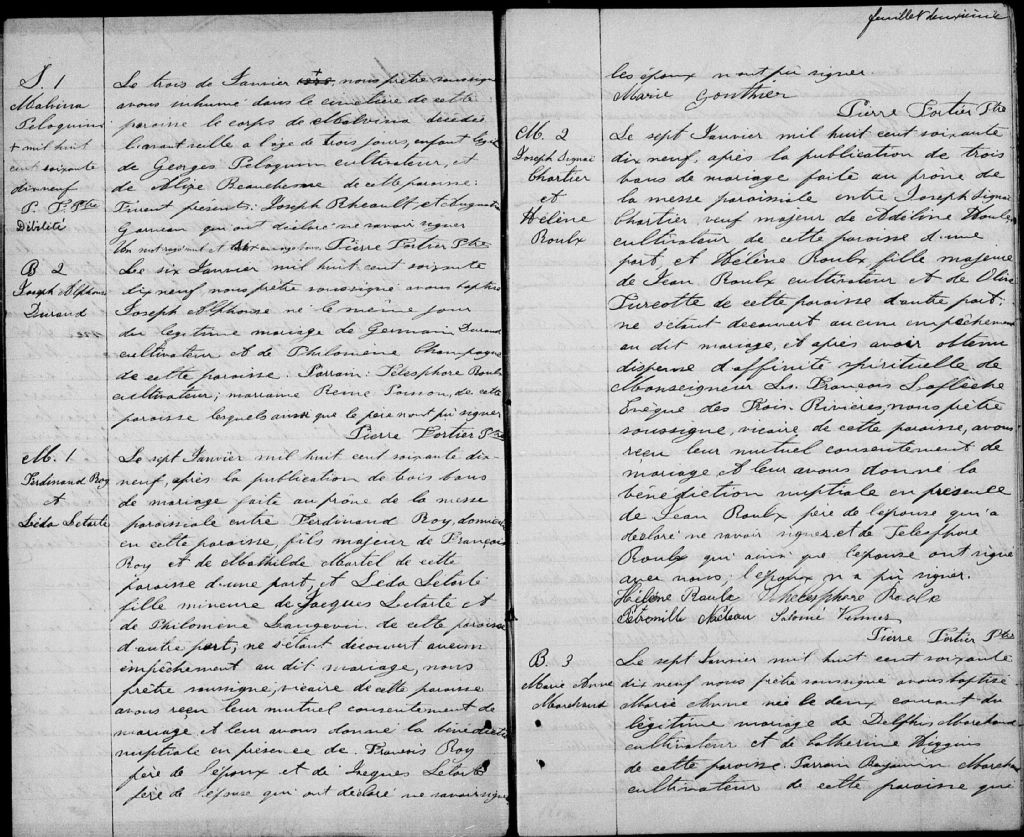 S. 1
Malvina
Peloquin
+ mil huit
cent soixante
dix neuf
P. F. Ptre
Débilité
Le trois de Janvier nous prêtre soussigné
avons inhumé dans le cimetière de cette
paroisse le corps de Malvina décédée
avant veille a l'age de trois jours, enfant
de Georges Peloquin cultivateur, et
de Alize Beauchesne de cette paroisse:
Furent présents: Joseph Rheault et
Garneau qui ont déclaré ne savoir signer
Un mot rayé nul et Pierre Fortier Ptre
B 2
Joseph Alphonse
Durand
Le six Janvier mil huit cent soixante
dix neuf, nous prêtre soussigné avons baptisé
Joseph Alphonse né le même jour
du legitime mariage de Germain Durand
cultivateur et de Philomène Champagne
de cette paroisse. Parrain: Télesphore Roulx
cultivateur; marraine Reine Poisson, de cette
paroisse lesquels ainsi que le père n'ont pu signer
Pierre Fortier Ptre
M. 1
Ferdinand Roy
et
Léda Letarte
Le sept Janvier mil huit cent soixante dix-
neuf, après la publication de trois bans
de mariage faite au prône de la messe
paroissiale entre Ferdinand Roy, domicilié
en cette paroisse, fils majeur de François
Roy et de Mathilde Martel de cette
paroisse d'une part, et Léda Letarte
fille mineure de Jacques Letarte et
de Philomène Langevin de cette paroisse
d'autre part; ne s'étant découvert aucun
empêchement au dit mariage, nous
prêtre soussigné, vicaire de cette paroisse
avons reçu leur mutuel consentement de
mariage et leur avons donné la bénédiction
nuptiale en présence de François Roy
père de l'époux et de Jacques Letarte
père de l'épouse qui ont déclaré ne savoir signer
feuillet deuxième
les époux n'ont pu signer
Marie Gonthier
Pierre Fortier Ptre
M. 2
Joseph Signai
Chartier
et
Hélène
Roulx
Le sept Janvier mil huit cent soixante
dix neuf, après la publication de trois
bans de mariage faite au prône de
la messe paroissiale entre Joseph Signai
Chartier, veuf majeur de Adéline
cultivateur de cette paroisse d'une
part, et Hélène Roulx fille majeure
de Jean Roulx cultivateur et de Olive
Turcotte de cette paroisse d'autre part;
ne s'étant decouvert aucun empêchement
au dit mariage, et après avoir obtenu
dispense d'affinité spirituelle de
Monseigneur Ls. François Laflèche
Evêque des Trois-Rivières, nous prêtre
soussigné, vicaire de cette paroisse, avons
reçu leur mutuel consentement de
mariage et leur avons donné la
bénédiction nuptiale en présence
de Jean Roulx père de l'épouse qui a
déclaré ne savoir signer et de Telesphore
Roulx qui ainsi que l'épouse ont signé
avec nous; l'époux n'a pu signer.
Hélène Roulx Thelesphore Roulx
Petronille Nadeau Salomé Vennes
Pierre Fortier Ptre
B. 3
Marie Anne
Marchand
Le sept Janvier mil huit cent soixante
dix neuf nous prêtre soussigné avons baptisé
Marie Anne née le deux courant du
légitime mariage de Delphis Marchand
cultivateur et de Catherine Higgins
de cette paroisse. Parrain Benjamin Marchand
cultivateur de cette paroisse que